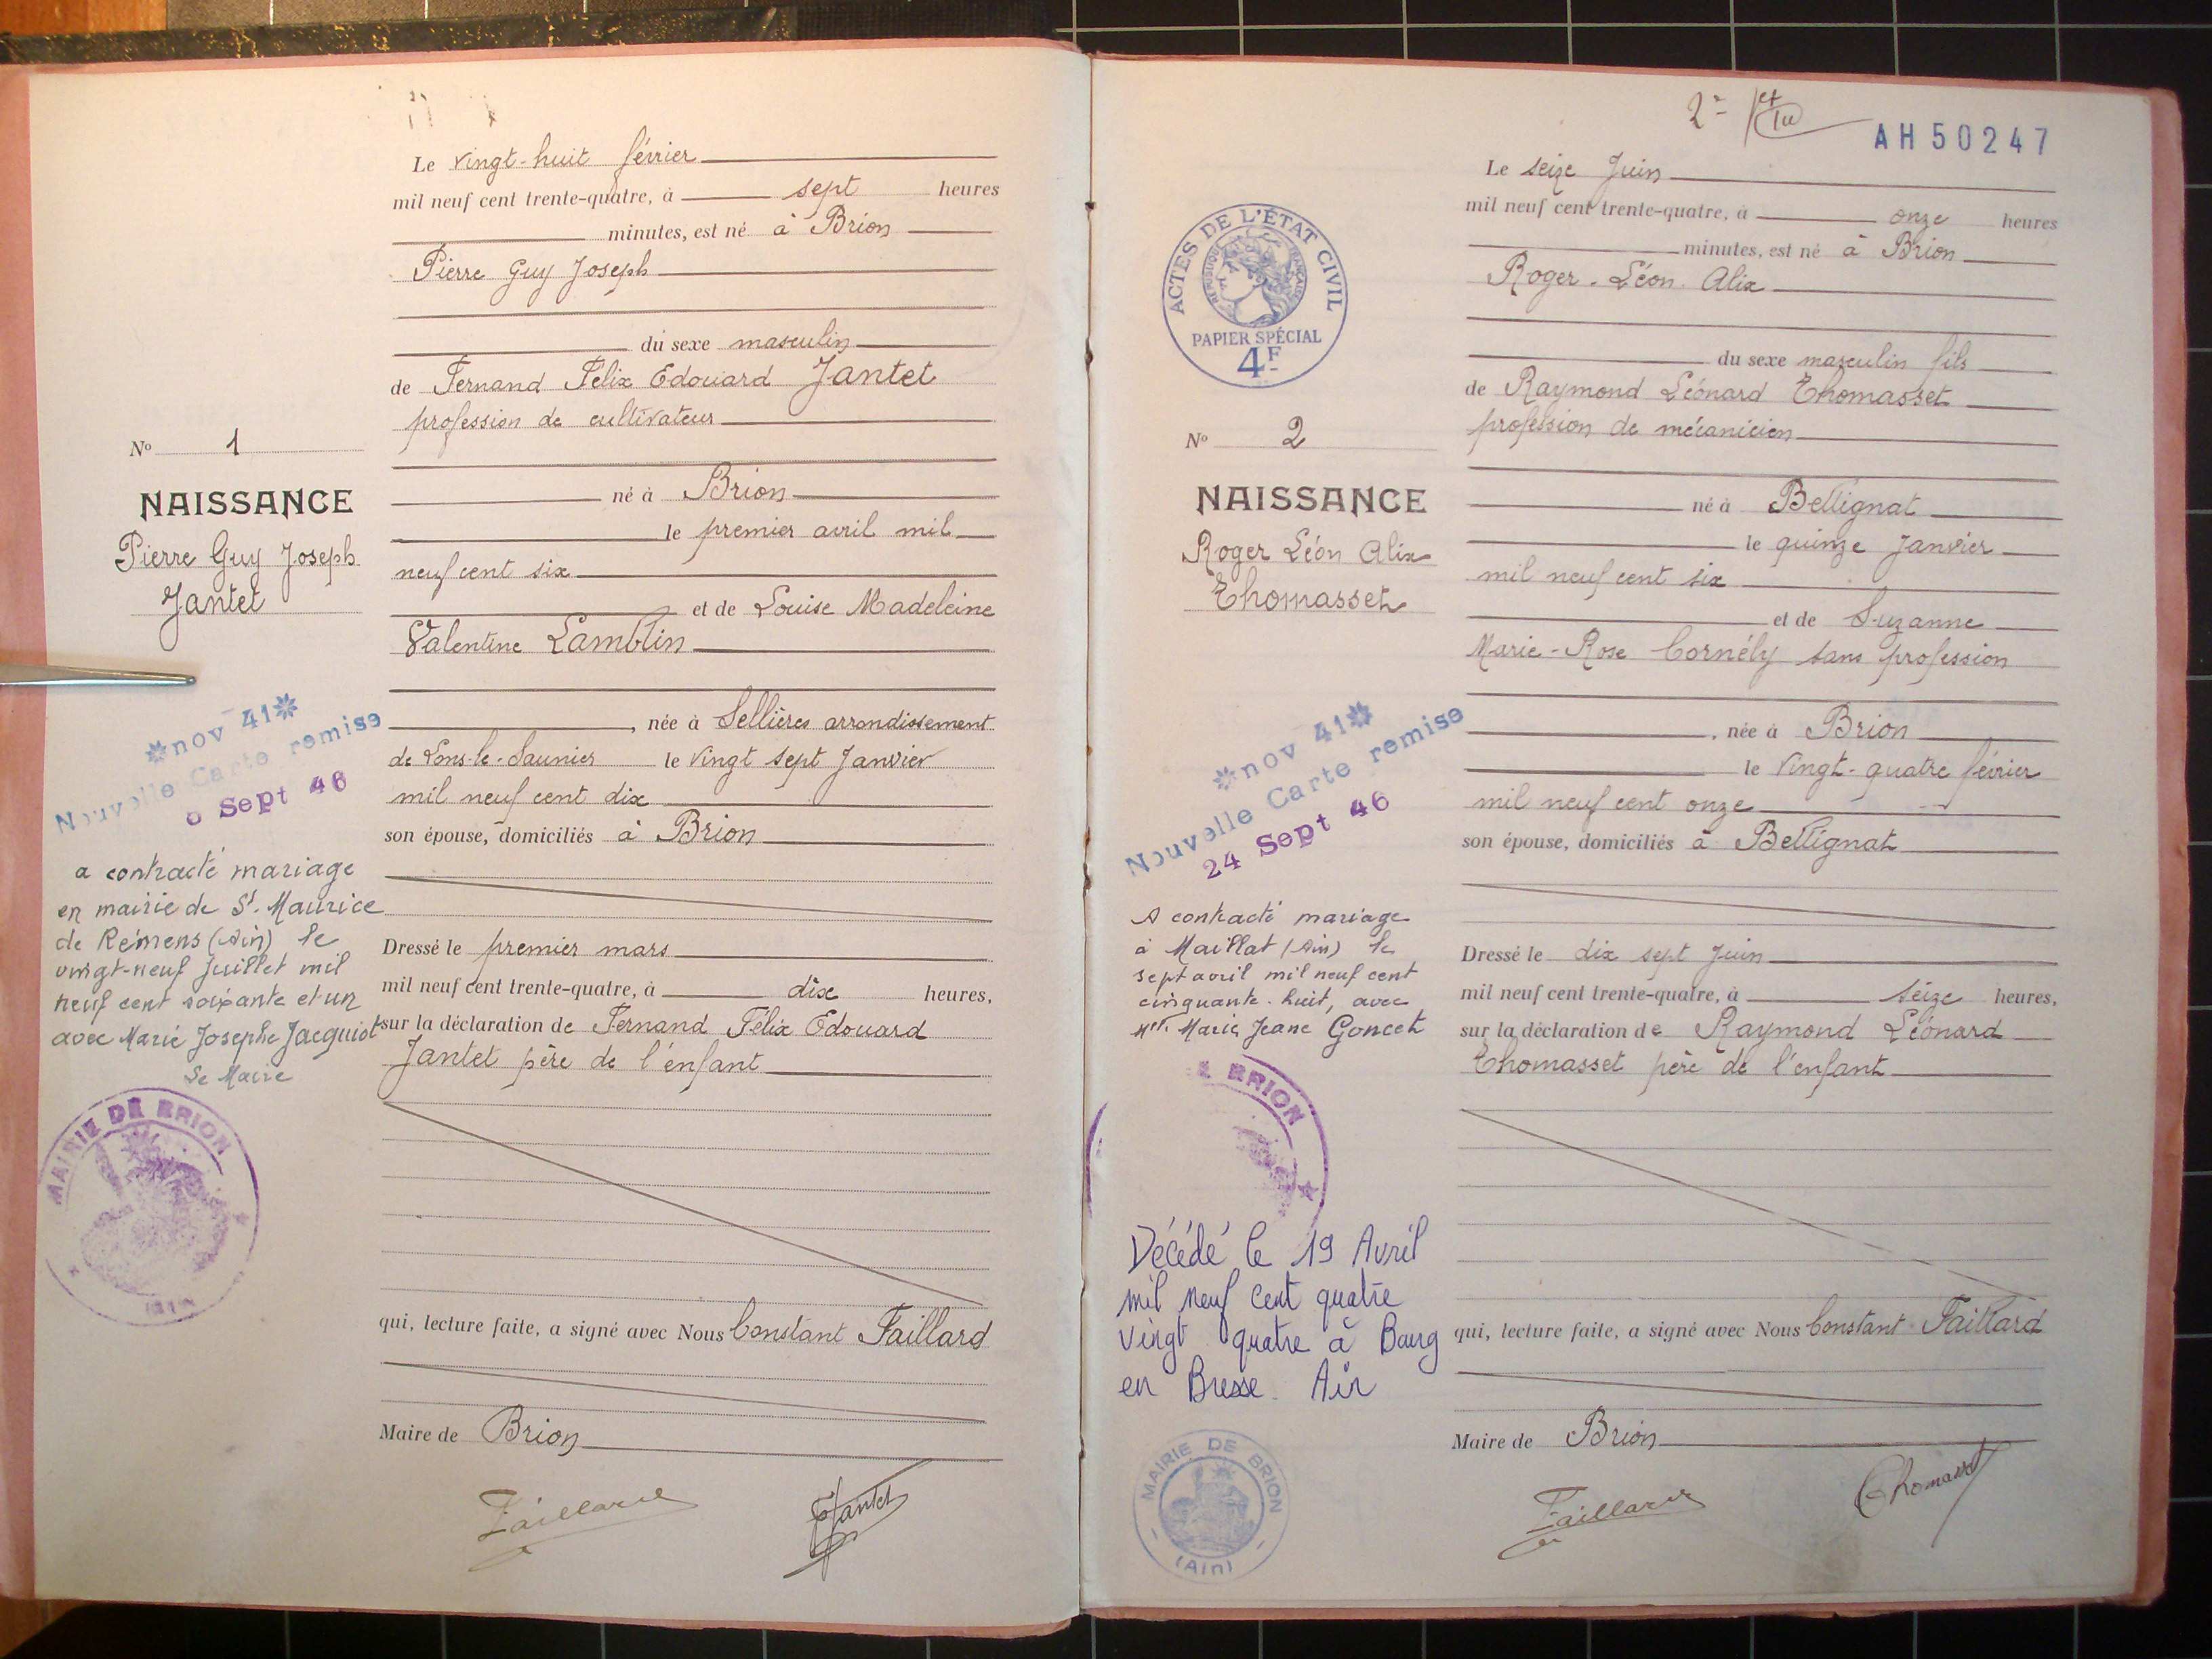 Le vingt-huit février
mil neuf cent trente-quatre, à sept heures
minutes, est né à Brion
Pierre Guy Joseph
du sexe masculin
de Fernand Félix Edouard Jantet
profession de cultivateur
né à Brion
le premier avril mil
neuf cent six
et de Louise Madeleine
Valentine Lamblin
, née à Sellières arrondissement
de Lons-le-Saunier le vingt sept Janvier
mil neuf cent dix
son épouse, domiciliés à Brion
Dressé le premier mars
mil neuf cent trente-quatre, à dix heures,
sur la déclaration de Fernand Félix Edouard
Jantet père de l'enfant
qui, lecture faite, a signé avec Nous Constant Faillard
Maire de Brion
Faillard
Jantet
No 1
NAISSANCE
Pierre Guy Joseph
Jantet
nov 41
Nouvelle Carte remise
Sept 46
a contracté mariage
en mairie de St. Maurice
de Rémens (Ain) le
vingt-neuf Juillet mil
neuf cent soixante et un
avec Marie Josephe Jacquiot
Le Maire
MAIRIE DE BRION
(AIN)
2
AH50247
Le seize Juin
mil neuf cent trente-quatre, à onze heures
minutes, est né à Brion
Roger-Léon-Alix
du sexe masculin fils
de Raymond Léonard Thomasset
profession de mécanicien
né à Bellignat
le quinze Janvier
mil neuf cent six
et de Suzanne
Marie-Rose Cornély sans profession
, née à Brion
le vingt-quatre février
mil neuf cent onze
son épouse, domiciliés à Bellignat
Dressé le dix sept Juin
mil neuf cent trente-quatre, à seize heures,
sur la déclaration de Raymond Léonard
Thomasset père de l'enfant
qui, lecture faite, a signé avec Nous Constant Faillard
Maire de Brion
Faillard
Thomasset
ACTES DE L'ÉTAT CIVIL
RÉPUBLIQUE FRANÇAISE
PAPIER SPÉCIAL
4F
No 2
NAISSANCE
Roger Léon Alix
Thomasset
nov 41
Nouvelle Carte remise
24 Sept 46
A contracté mariage
à Maillat (Ain) le
sept avril mil neuf cent
cinquante-huit, avec
Melle Marie, Jeane Goncet
E BRION
Décédé le 19 Avril
mil neuf cent quatre
vingt quatre à Bourg
en Bresse. Ain
MAIRIE DE BRION
(Ain)